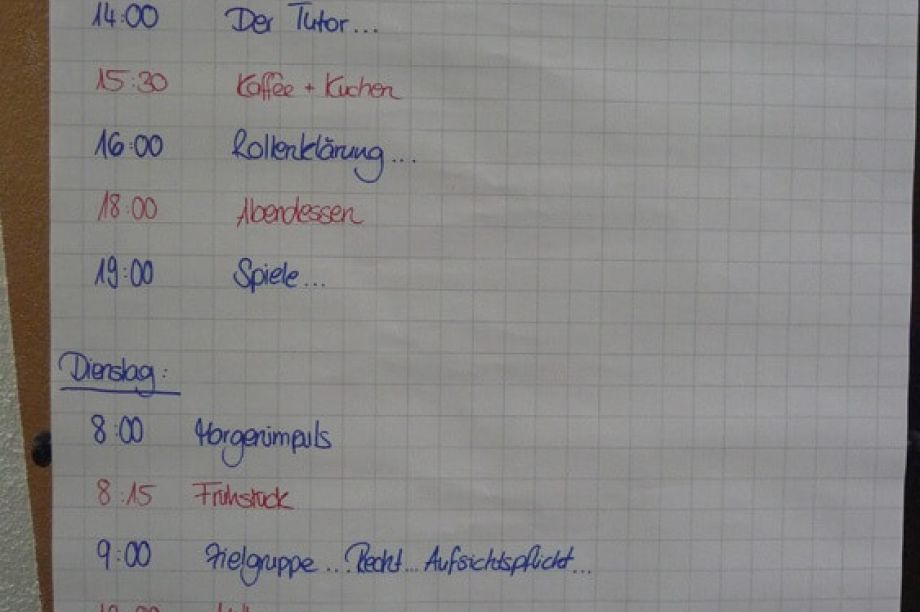 14:00 Der Tutor...
15:30 Kaffee + Kuchen
16:00 Rollenklärung...
18:00 Abendessen
19:00 Spiele...
Dienstag:
8:00 Morgenimpuls
8:15 Frühstück
9:00 Zielgruppe... Recht... Aufsichtspflicht...